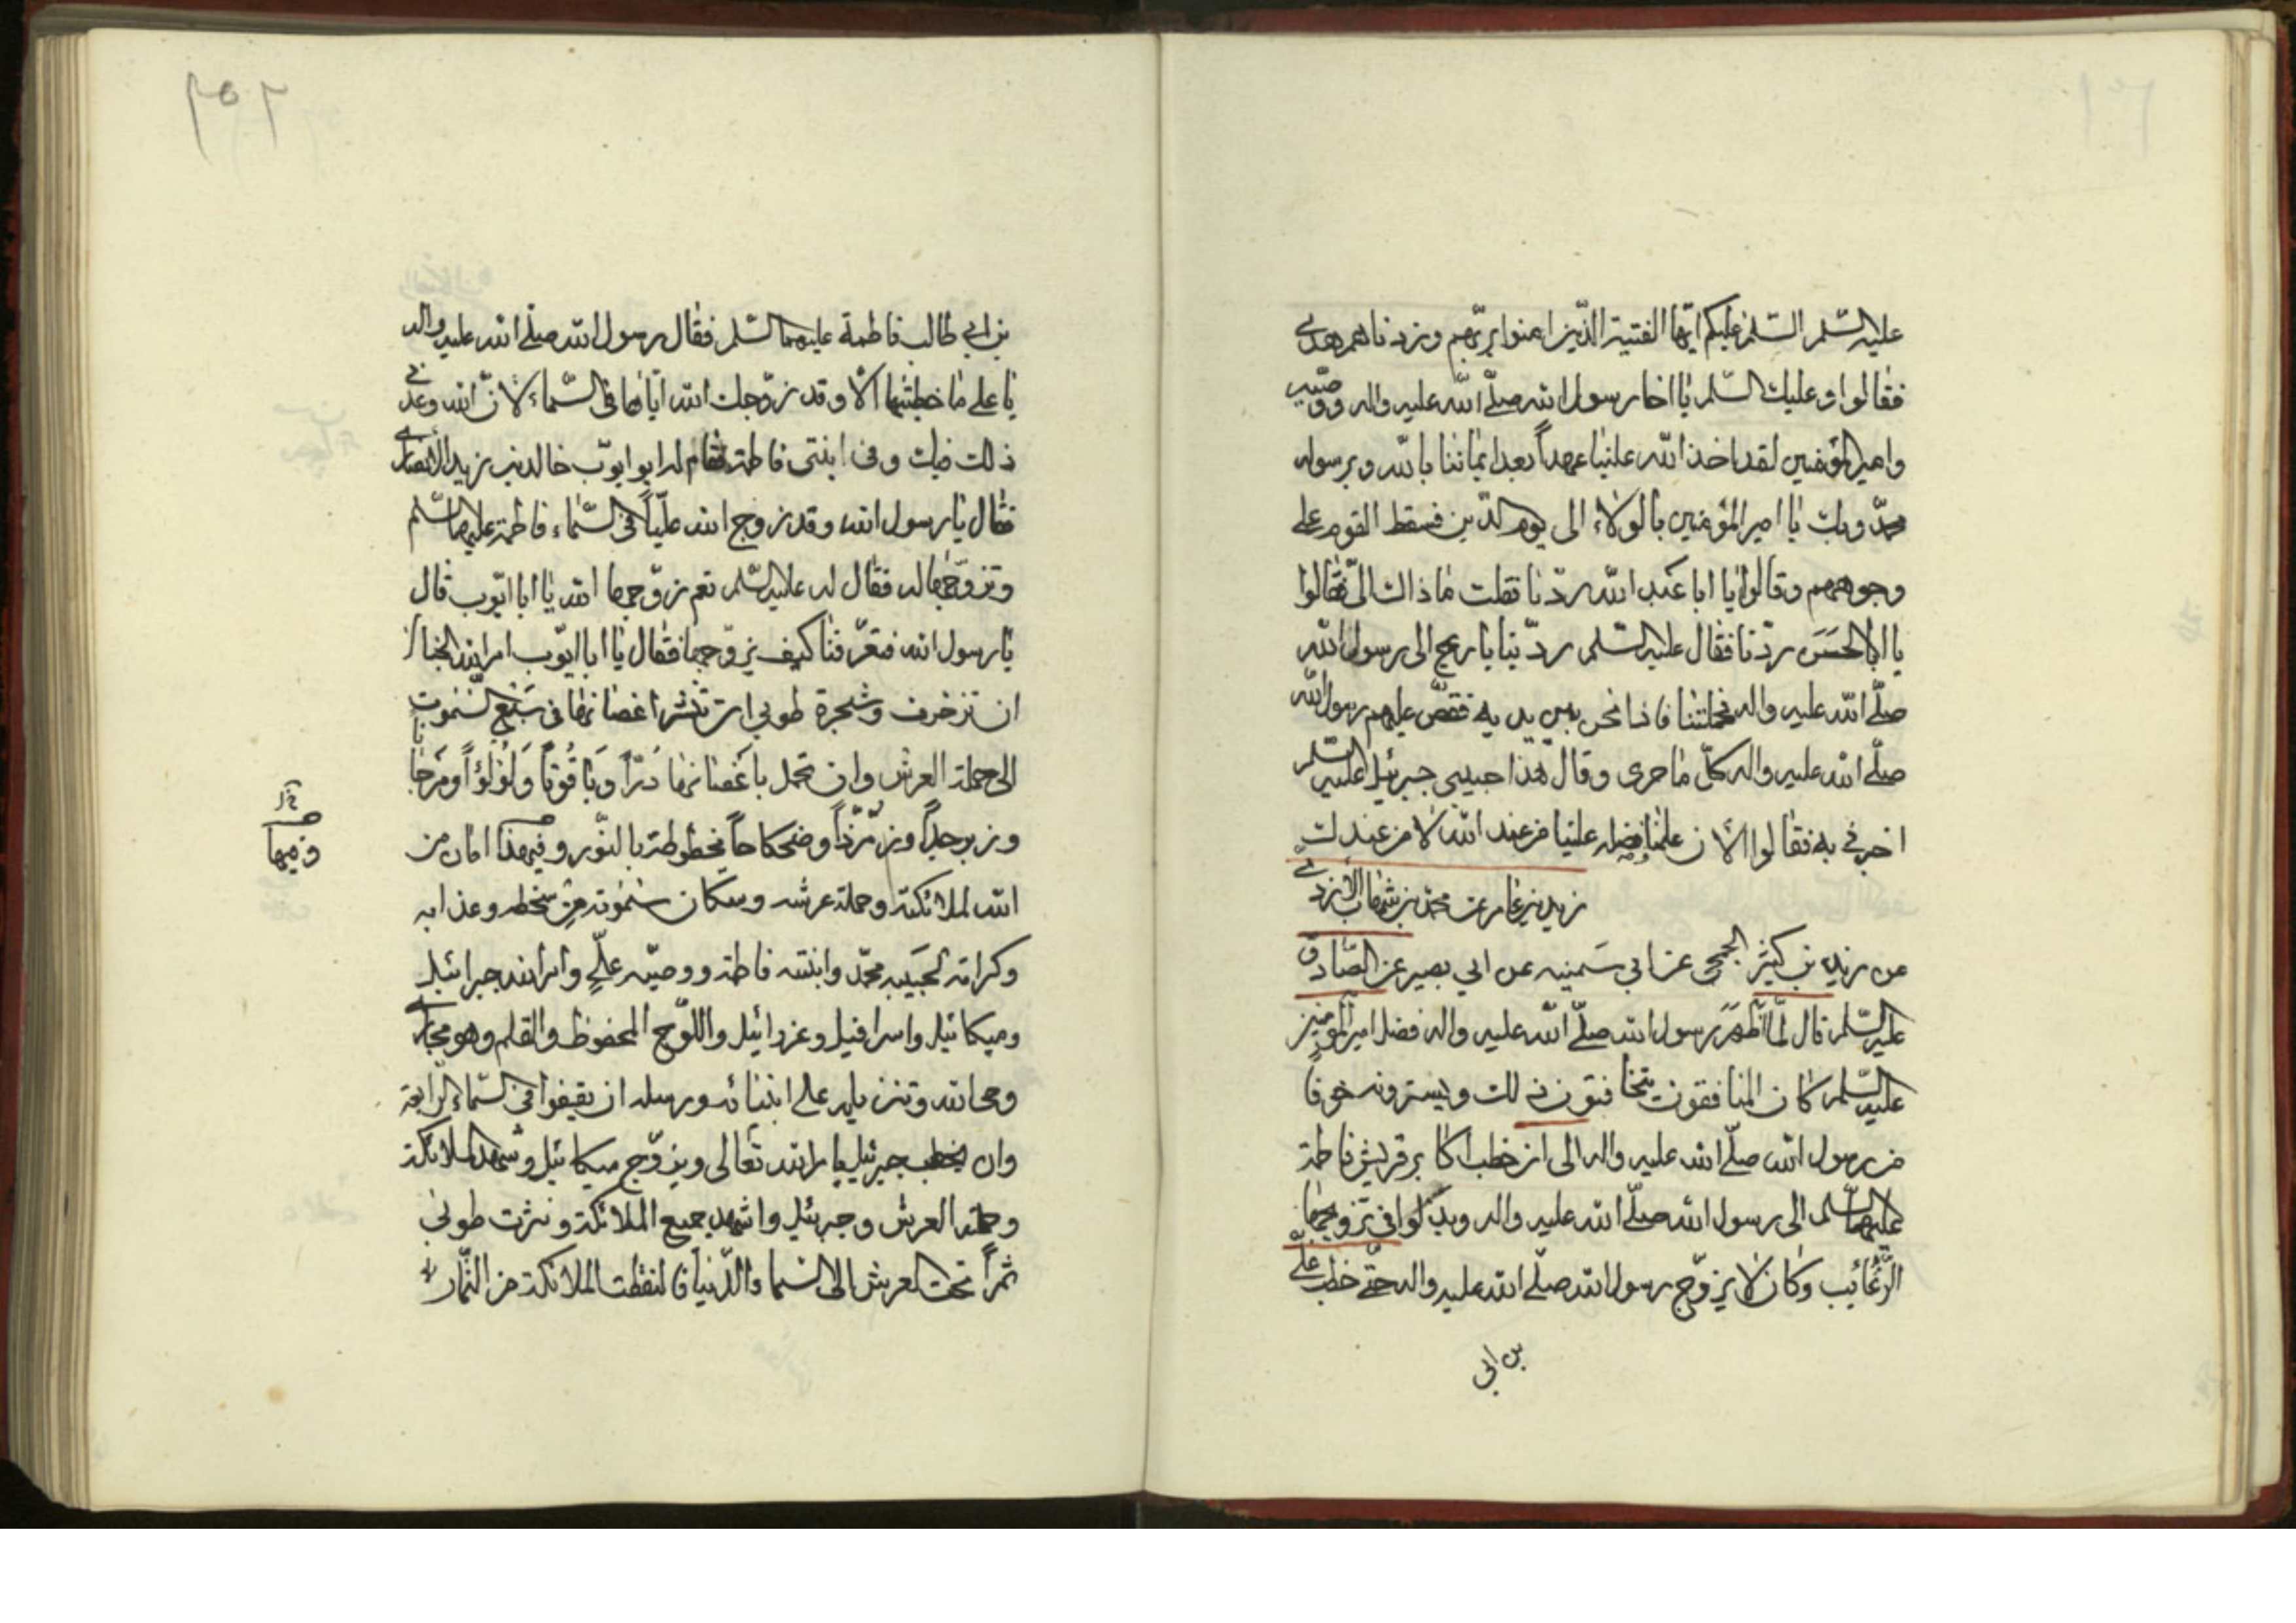 عليه السّلم السّلم عليكم ايّها الفتية الذّين امنوا بربّهم وزدناهم هدى
فقالوا وعليك السّلم يا اخا رسول الله صلّى الله عليه واله ووصّيه
وامير المؤمنين لقد اخذ الله علينا عهداً بعد ايماننا بالله وبرسوله
محمّد وبك يا امير المؤمنين بالولاء الى يوم الدّين فسقط القوم على
وجوههم وقالوا يا ابا عبد الله ردّنا فقلت ما ذاك الىّ فقالوا
يا ابا الحسَن ردّنا فقال عليه السّلم ردّينا يا ريح الى رسول الله
صلّى الله عليه واله فحملتنا فاذا نحن بين يديه فقصّ عليهم رسول الله
صلّى الله عليه واله كلّ ما جرى وقال هذا حبيبى جبرئيل عليه السّلم
اخبرنى به فقالوا الآن علمنا فضله علينا من عند الله لا من عندك
زيد بن عامر عن محمّد بن شهاب الأزدى
عن زيد بن كثير الجمحى عن ابي سَمينه عن ابي بصير عن الصّادق
عليه السّلم قال لمّا ظهَرَ رسول الله صلّى الله عليه واله فضل امير المؤمنين
عليه السّلم كان المنافقون يتخافتون ذلك ويسترونه خوفاً
من رسول الله صلّى الله عليه واله الى ان خطب اكابر قريش فاطمة
عليهما السّلم الى رسول الله صلّى الله عليه واله وبذلوا فى تزويجها
الرّغائب وكان لا يزوّج رسول الله صلّى الله عليه واله حتّى خطب علىّ
بن ابى
٢٥٢
بن ابى طالب فاطمة عليهما السّلم فقال رسول الله صلّى الله عليه واله
يا على ما خطبتها الّا وقد زوّجك الله ايّاها فى السّماء لانّ الله وعدنى
ذلك فيك وفى ابنتى فاطمة فقام له ابو ايوّب خالد بن زيد الأنصارى
فقال يا رسول الله وقد زوج الله عليّاً فى السّماء فاطمة عليهما السّلم
وتزوّجها له فقال له عليه السّلم نعم زوّجها الله يا ابا ايّوب قال
يا رسول الله فتعرّفنا كيف زوّجها فقال يا ابا ايّوب امر الله الجنان
ان تزخرف وشجرة طوبى ان تنشر اغصانها فى سَبع السّموت
الى حملة العرش وان تحمل باغَصانها دُرّاً وَيَاقُوتاً وَلُؤلُؤاً ومَرجاناً
وزبرجداً وزمرّذاً وضحكاحاً مخطوطة بالنّور وفيها هذا امان من
الله لملائكته وحملة عرشه وسكان سموته من سخطه وعذابه
وكرامة لحَبيبه محمّد وابنته فاطمة ووصيّه علىّ وامر الله جبرائيل
وميكائيل واسرافيل وعزرائيل واللوّح المحفوظ والقلم وهو مجارى
وحى الله وتنزيله على انبيائه ورسله ان يقيفوا فى السّماء الرّابعة
وان يخطب جبرئيل بامر الله تعالى ويزوّج ميكائيل وشهد الملائكة
وحملة العرش وجبرئيل واشهد جميع الملائكة ونثرت طوبى
ثمراً تحت العرش الى السّماء الدّنيا فالتقطت الملائكة من الثّمار
وفيها